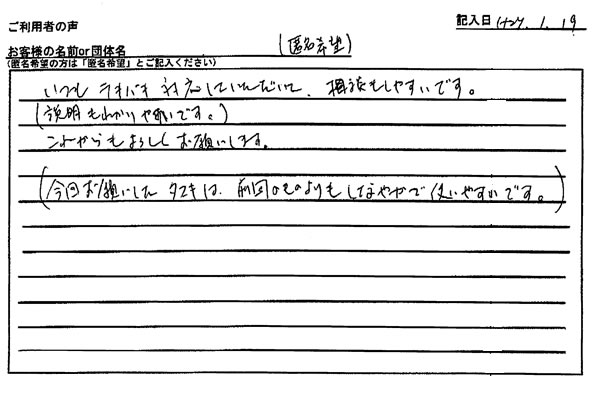 ご利用者の声
記入日 H27. 1. 19
お客様の名前or団体名 (匿名希望)
(匿名希望の方は「匿名希望」とご記入ください)
いつも テキパキ 対応していただいて、相談もしやすいです。
(説明もわかりやすいです。)
これからもよろしくお願いします。
(今回お願いした タスキは、前回のものよりもしなやかで使いやすいです。)